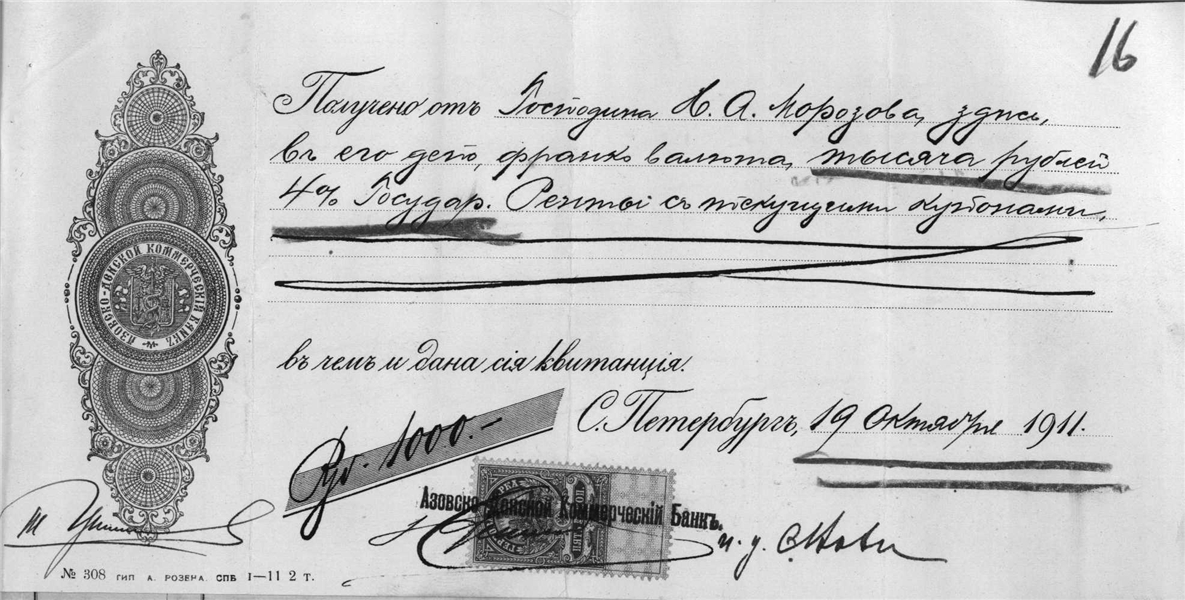 16
Получено отъ Господина Н. А. Морозова, здѣсь,
въ его депо, франко валюта, тысяча рублей
4% Государ. Ренты съ текущими купонами,
АЗОВСКО-ДОНСКОЙ КОММЕРЧЕСКІЙ БАНКЪ
въ чемъ и дана сія квитанція.
С. Петербургъ, 19 Октября 1911.
Ру. 1000.-
Азовско-Донской Коммерческій Банкъ.
и. у.
№ 308 ГИП А. РОЗЕНА. СПБ I—11 2 т.